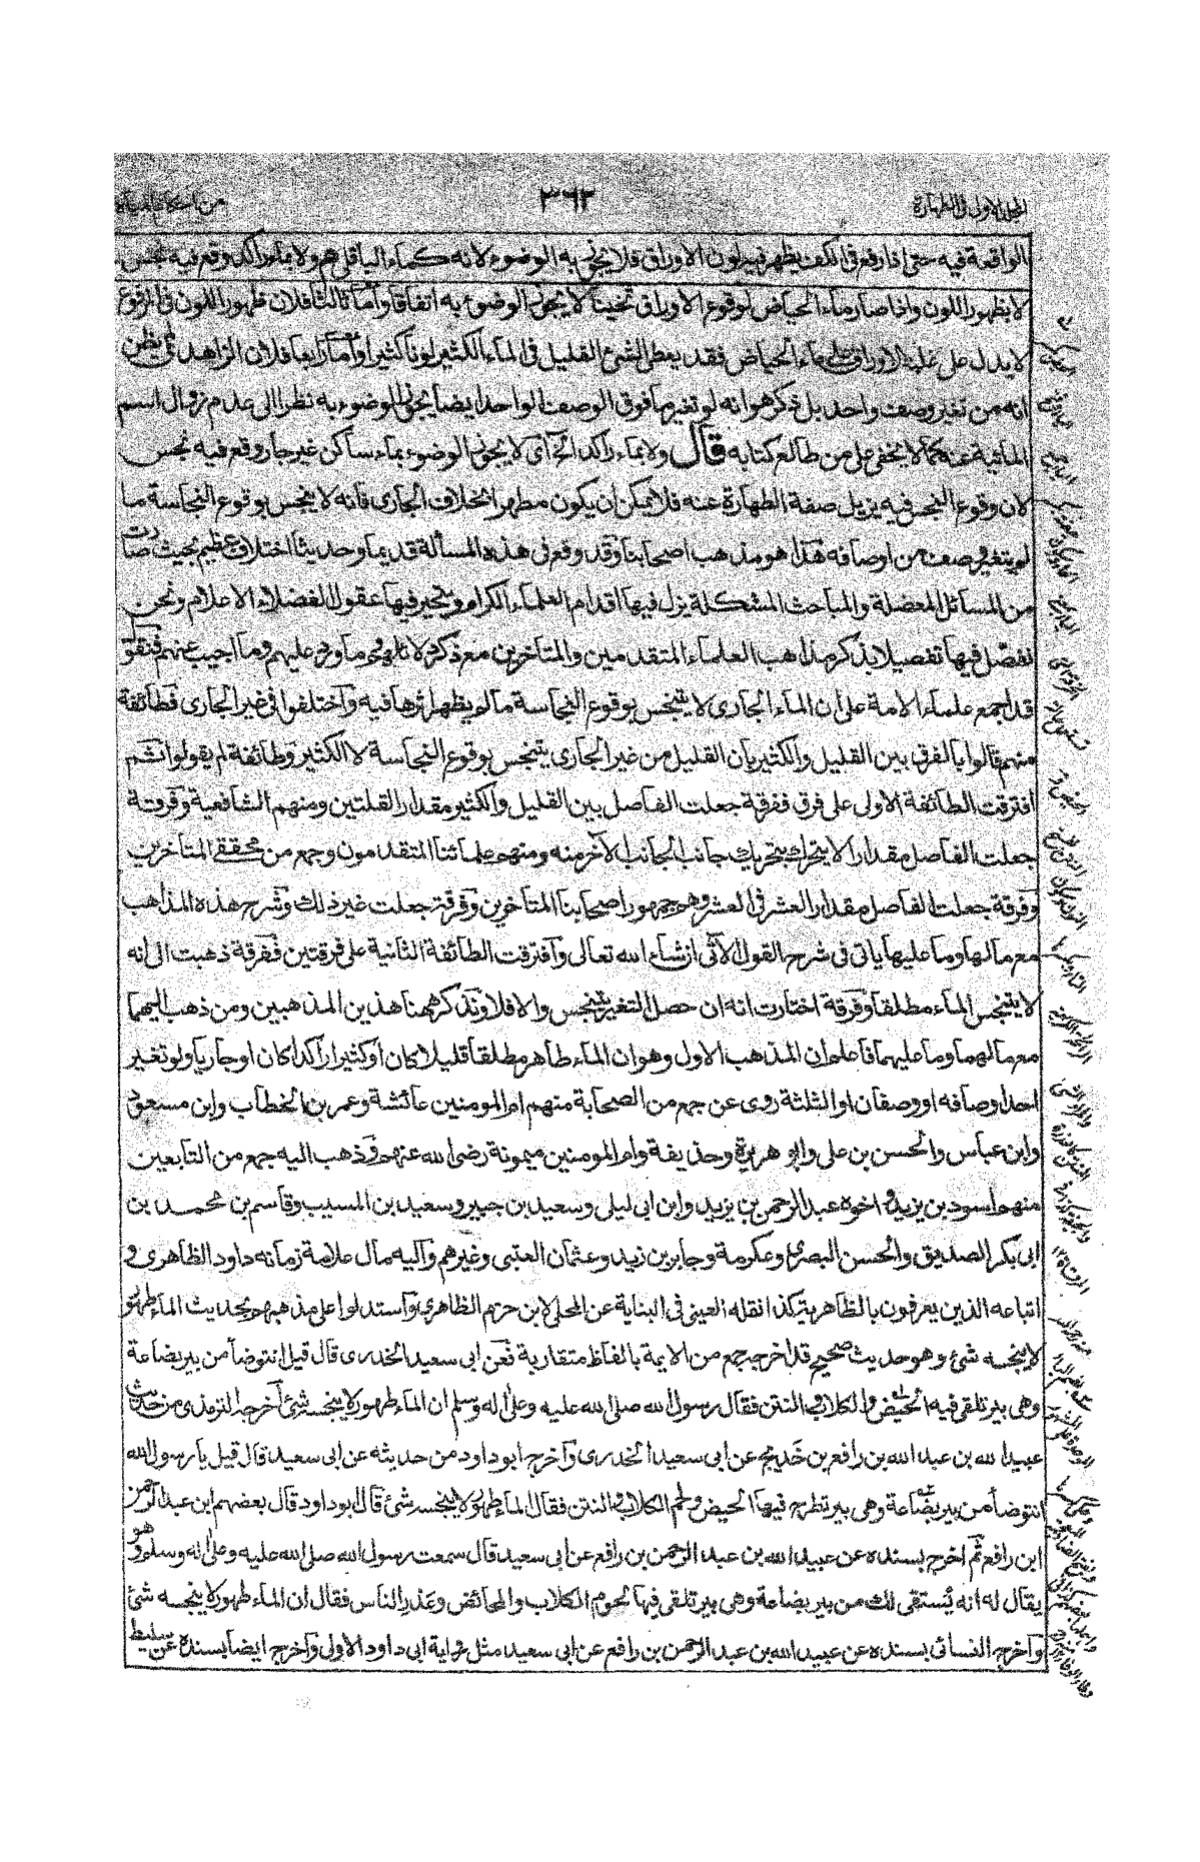 المجلد الاول فى الطهارة
٣٦٢
الواقعة فيه حتى اذا رفع فى الكف يظهر فيه لون الاوراق فلا يجوز به الوضوء لانه كماء الباقلى هم ولا بماء راكد وقع فيه نجس
لا بظهور اللون واذا صار ماء الحياض لوقوع الاوراق ثخينا لا يجوز الوضوء به اتفاقا وأما ثالثا فلان ظهور اللون فى المرفوع
لا يدل على غلبة الاوراق على ماء الحياض فقد يعطى الشئ القليل فى الماء الكثير لونا كثيرا وأما رابعا فلان الزاهد لم يظن
انه من تغير وصف واحد بل ذكر هو انه لو تغير ما فوق الوصف الواحد ايضا يجوز الوضوء به نظرا الى عدم زوال اسم
المائية عنه كما لا يخفى على من طالع كتابه قال ولا بماء راكد الخ أى لا يجوز الوضوء بماء ساكن غير جار وقع فيه نجس
لان وقوع النجس فيه يزيل صفة الطهارة عنه فلا يمكن أن يكون مطهرا بخلاف الجارى فانه لا ينجس بوقوع النجاسة ما
لم يتغير وصف من اوصافه هذا هو مذهب اصحابنا وقد وقع فى هذه المسألة قديما وحديثا اختلاف عظيم بحيث صارت
من المسائل المعضلة والمباحث المشكلة يزل فيها اقدام العلماء الكرام ويتحير فيها عقول الفضلاء الاعلام ونحن
نفصل فيها تفصيلا بذكر مذاهب العلماء المتقدمين والمتأخرين مع ذكر دلائلهم وما ورد عليهم وما اجيب عنهم فنقول
قد اجمع علماء الامة على أن الماء الجارى لا يتنجس بوقوع النجاسة ما لم يظهر اثرها فيه وأختلفوا فى غير الجارى فطائفة
منهم قالوا بالفرق بين القليل والكثير بأن القليل من غير الجارى يتنجس بوقوع النجاسة لا الكثير وطائفة لم يقولوا به ثم
افترقت الطائفة الاولى على فرق ففرقة جعلت الفاصل بين القليل والكثير مقدار القلتين ومنهم الشافعية وفرقة
جعلت الفاصل مقدارا لا يتحرك بتحريك جانب الجانب الآخر منه ومنهم علمائنا المتقدمون وجمع من محققى المتأخرين
وفرقة جعلت الفاصل مقدار العشر فى العشر وهو جمهور اصحابنا المتاخرين وفرقة جعلت غير ذلك وشرح هذه المذاهب
مع مالها وما عليها يأتى فى شرح القول الآتى ان شاء الله تعالى وأفترقت الطائفة الثانية على فرقتين ففرقة ذهبت الى انه
لا يتنجس الماء مطلقا وفرقة اختارت انه ان حصل التغير يتنجس والا فلا ونذكر ههنا هذين المذهبين ومن ذهب اليهما
مع مالهما وما عليهما فأعلم ان المذهب الاول وهو ان الماء طاهر مطلقا قليلا كان أو كثيرا راكدا كان او جاريا ولو تغير
احد اوصافه او وصفان او الثلثة روى عن جمع من الصحابة منهم ام المومنين عائشة وعمر بن الخطاب وابن مسعود
وابن عباس والحسن بن على وابو هريرة وحذيفة وام المومنين ميمونة رضى الله عنهم وذهب اليه جمع من التابعين
منهم اسود بن يزيد واخوه عبد الرحمن بن يزيد وابن ابى ليلى وسعيد بن جبير وسعيد بن المسيب وقاسم بن محمد بن
ابى بكر الصديق والحسن البصرى وعكرمة وجابر بن زيد وعثمان العتبى وغيرهم وآليه مال علامة زمانه داود الظاهرى و
اتباعه الذين يعرفون بالظاهرية كذا نقله العينى فى البناية عن المحلى لابن حزم الظاهرى وأستدلوا على مذهبهم بحديث الماء طهور
لا ينجسه شئ وهو حديث صحيح قد اخرجه جمع من الايمة بالفاظ متقاربة فعن ابى سعيد الخدرى قال قيل انتوضأ من بير بضاعة
وهى بير تلقى فيه الحيض والكلاب والنتن فقال رسول الله صلى الله عليه وعلى اله وسلم ان الماء طهور لا ينجسه شئ أخرجه الترمذى من حديث
عبيد الله بن عبد الله بن رافع بن خديج عن ابى سعيد الخدرى وأخرج ابو داود من حديثه عن ابى سعيد قال قيل يا رسول الله
انتوضأ من بير بضاعة وهى بير تطرح فيها الحيض ولحم الكلاب والنتن فقال الماء طهور لا ينجسه شئ قال ابو داود قال بعضهم ابن عبد الرحمن
ابن رافع ثم اخرج بسنده عن عبيد الله بن عبد الرحمن بن رافع عن ابى سعيد قال سمعت رسول الله صلى الله عليه وعلى اله وسلم وهو
يقال له انه يستقى لك من بير بضاعة وهى بير تلقى فيها لحوم الكلاب والمحائض وعذر الناس فقال ان الماء طهور لا ينجسه شئ
وأخرج النسائى بسنده عن عبيد الله بن عبد الرحمن بن رافع عن ابى سعيد مثل رواية ابى داود الاولى وأخرج ايضا بسنده عن سليط